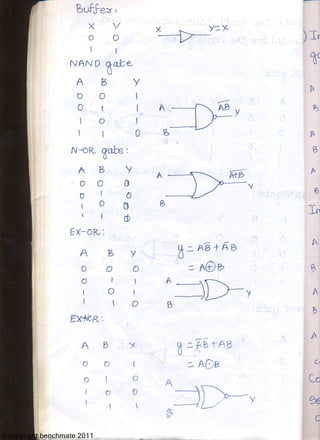 Buffer:
X Y X Y=X
0 0
1 1
NAND gate
A B Y
0 0 1
0 1 1 A AB̅ Y
1 0 1
1 1 0 B
N-OR gate:
A B Y A A+B Y
0 0
0 1
1 0 B
1 1
EX-OR:
A B Y y = AB̅ + A̅B
0 0 0 = A⊕B
0 1 1 A
1 0 1 Y
1 1 0 B
A B Y y = A̅B̅ + AB
0 0 1 = A⊙B
0 1 0 A
1 0 0 Y
1 1 1
copyright benchmate 2011